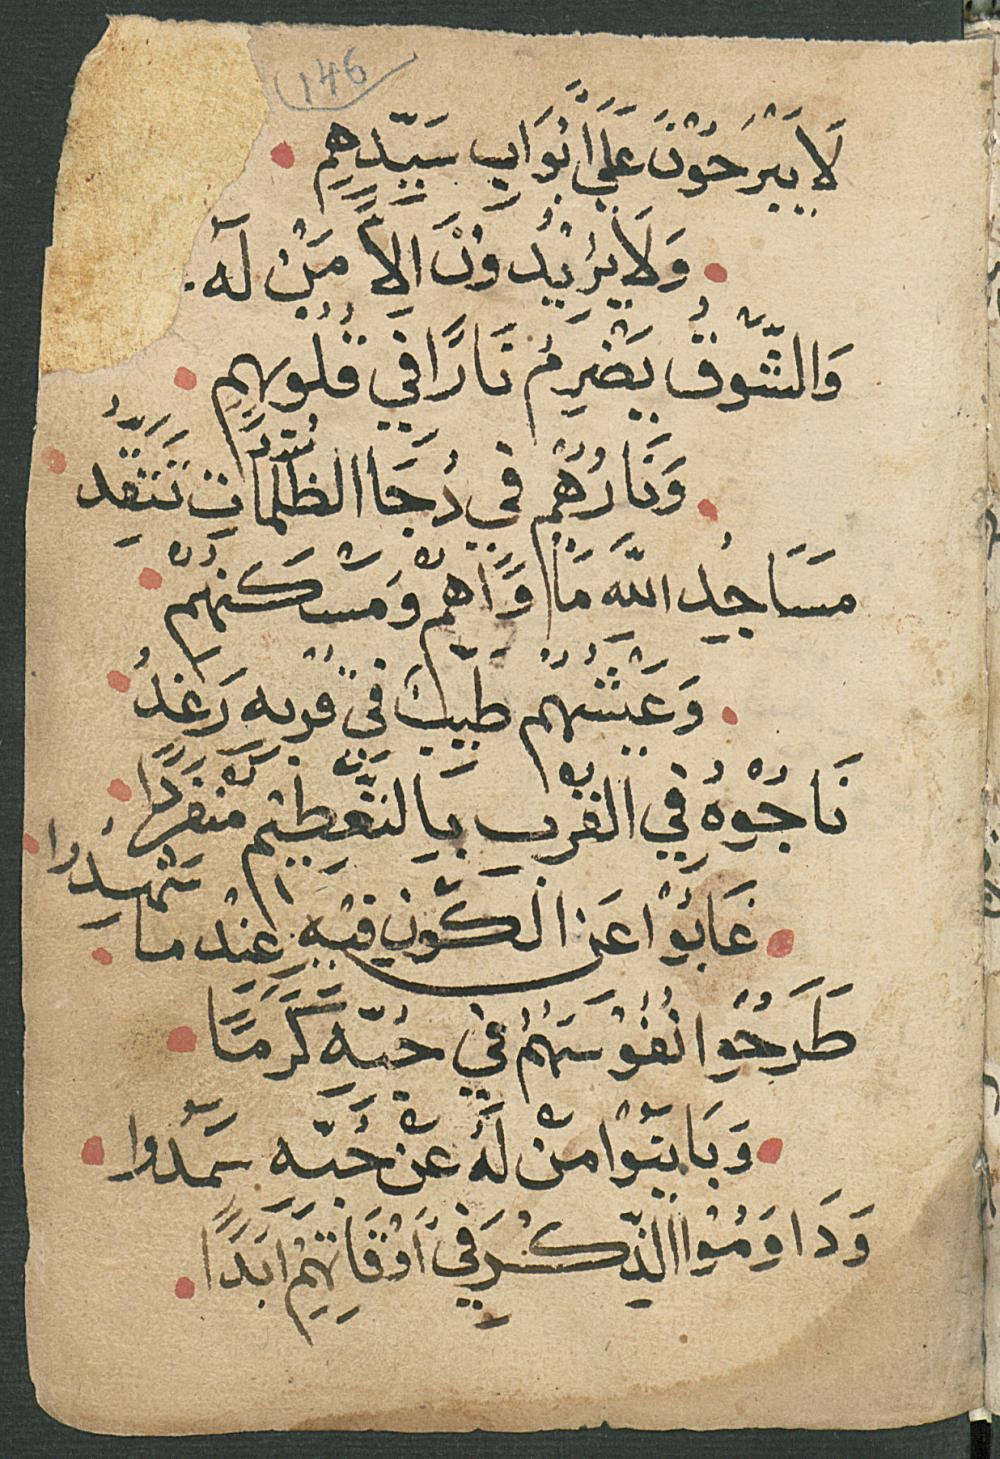 146
لَا يَبْرَحُوْنَ عَلَى أَبْوَابِ سَيِّدِهِمِ
وَلَا يُرِيْدُوْنَ اِلَّا مَنْ لَهُ
وَالشَّوْقُ يَضْرِمُ نَارًا فِي قُلُوبِهِمِ
وَنَارُهُمْ فِي دُجَا الظُّلُمَاتِ تَتَّقِدُ
مَسَاجِدُ اللّٰه مَأْوَاهُمْ وَمَسْكَنُهُمْ
وَعَيْشُهُمْ طَيِّبٌ فِي قُرْبِهِ رَغِدُ
نَاجُوْهُ فِي الْقُرْبِ بِالتَّعْظِيْمِ مُنْفَرِدًا
غَابُوْا عَنِ الْكَوْنِ فِيْهِ عِنْدَ مَا شَهِدُوا
طَرَحُوا نُفُوْسَهُمُ فِي حُبِّهِ كَرَمًا
وَبَايَنُوْا مَنْ لَهُ عَنْ حُبِّهِ سَمَدُوا
وَدَاوَمُوْا الذِّكْرَ فِي أَوْقَاتِهِمْ اَبَدًا